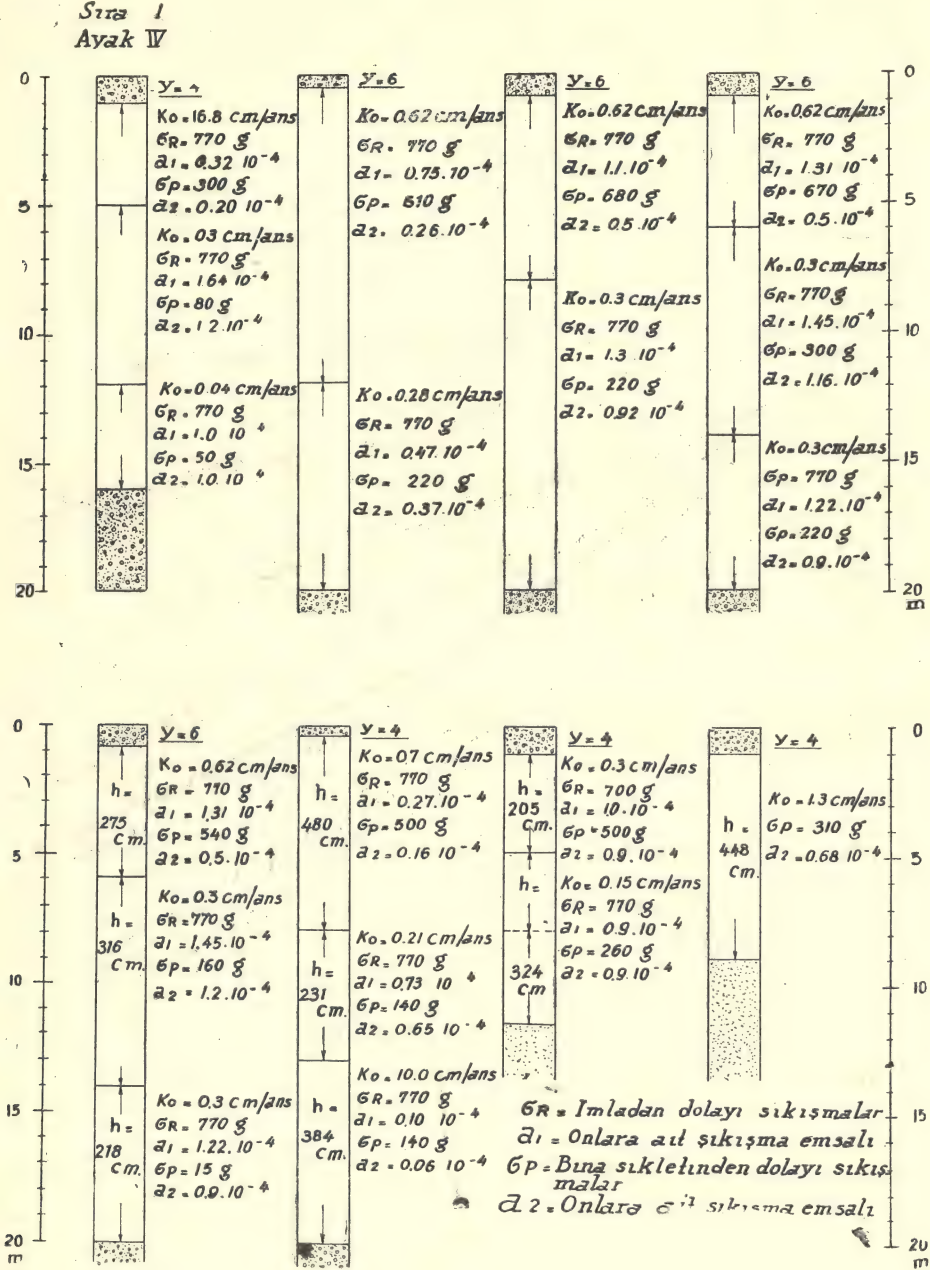 Sıra 1
Ayak IV
0
5
10
15
20
m
y=4
Ko=16.8 cm/ans
σR=770 g
a1=0.32 10⁻⁴
σp=300 g
a2=0.20 10⁻⁴
Ko=03 cm/ans
σR=770 g
a1=1.64 10⁻⁴
σp=80 g
a2=1 2.10⁻⁴
Ko=0.04 cm/ans
σR=770 g
a1=1.0 10 ⁴
σp=50 g
a2=1.0.10 ⁴
y=6
Ko=0.62 cm/ans
σR=770 g
a1=0.75.10⁻⁴
σp=610 g
a2=0.26.10⁻⁴
Ko=0.28 cm/ans
σR=770 g
a1=0.47.10⁻⁴
σp=220 g
a2=0.37.10⁻⁴
y=6
Ko=0.62 cm/ans
σR=770 g
a1=1.1.10⁻⁴
σp=680 g
a2=0.5.10⁻⁴
Ko=0.3 cm/ans
σR=770 g
a1=1.3 .10⁻⁴
σp=220 g
a2=0.92 10⁻⁴
y=6
Ko=0.62 cm/ans
σR=770 g
a1=1.31 10⁻⁴
σp=670 g
a2=0.5.10⁻⁴
Ko=0.3 cm/ans
σR=770 g
a1=1.45.10⁻⁴
σp=300 g
a2=1.16.10⁻⁴
Ko=0.3 cm/ans
σp=770 g
a1=1.22.10⁻⁴
σp=220 g
a2=0.9.10⁻⁴
0
5
10
15
20
m
0
5
10
15
20
m
y=6
h=
275
Cm.
Ko=0.62 cm/ans
σR=770 g
a1=1,31 10⁻⁴
σp=540 g
a2=0,5.10⁻⁴
h=
316
Cm.
Ko=0.3 cm/ans
σR=770 g
a1=1,45.10⁻⁴
σp=160 g
a2=1.2.10⁻⁴
h=
218
Cm.
Ko=0,3 cm/ans
σR=770 g
a1=1.22.10⁻⁴
σp=15 g
a2=0.9.10⁻⁴
y=4
h=
480
Cm.
Ko=0,7 cm/ans
σR=770 g
a1=0.27.10⁻⁴
σp=500 g
a2=0.16 10⁻⁴
h=
231
Cm.
Ko=0.21 cm/ans
σR=770 g
a1=0,73 10 ⁴
σp=140 g
a2=0.65 10⁻⁴
h=
384
Cm.
Ko=10.0 cm/ans
σR=770 g
a1=0,10 10⁻⁴
σp=140 g
a2=0.06 10⁻⁴
y=4
h=
205
Cm.
Ko=0.3 cm/ans
σR=700 g
a1=10.10⁻⁴
σp=500 g
a2=0.9.10⁻⁴
h=
324
cm
Ko=0.15 cm/ans
σR=770 g
a1=0.9.10⁻⁴
σp=260 g
a2=0.9.10⁻⁴
y=4
h=
448
Cm.
Ko=1.3 cm/ans
σp=310 g
a2=0.68 10⁻⁴
0
5
10
15
20
m
σR=Imladan dolayı sıkışmalar
a1=Onlara aıt şıkışma emsalı
σp=Bına sıkletınden dolayı sıkış-
malar
a2=Onlara sıkısma emsalı